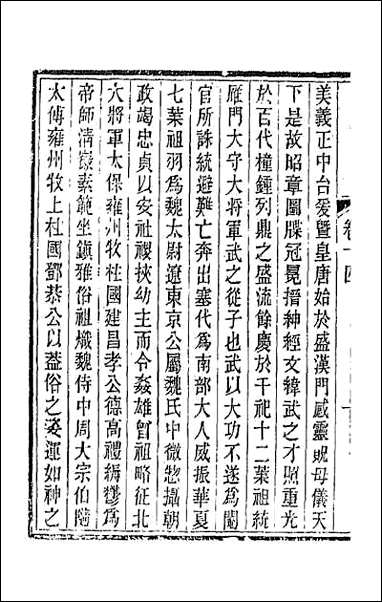 卷十四
美義正中台爰暨皇唐始於盛漢門感靈貺母儀天
下是故昭章圖牒冠冕搢紳經文緯武之才照重光
於百代橦鐘列鼎之盛流餘慶於千祀十二葉祖統
雁門大守大將軍武之從子也武以大功不遂爲閹
官所誅統避難亡奔出塞代爲南部大人威振華夏
七葉祖羽爲魏太尉遼東京公屬魏氏中微惣攝朝
政竭忠貞以安社稷挾幼主而令姦雄曾祖略征北
大將軍太保雍州牧柱國建昌孝公德高禮縟諺爲
帝師清巖素範坐鎮雅俗祖熾魏侍中周大宗伯隨
太傅雍州牧上柱國鄧恭公以葢俗之姿運如神之